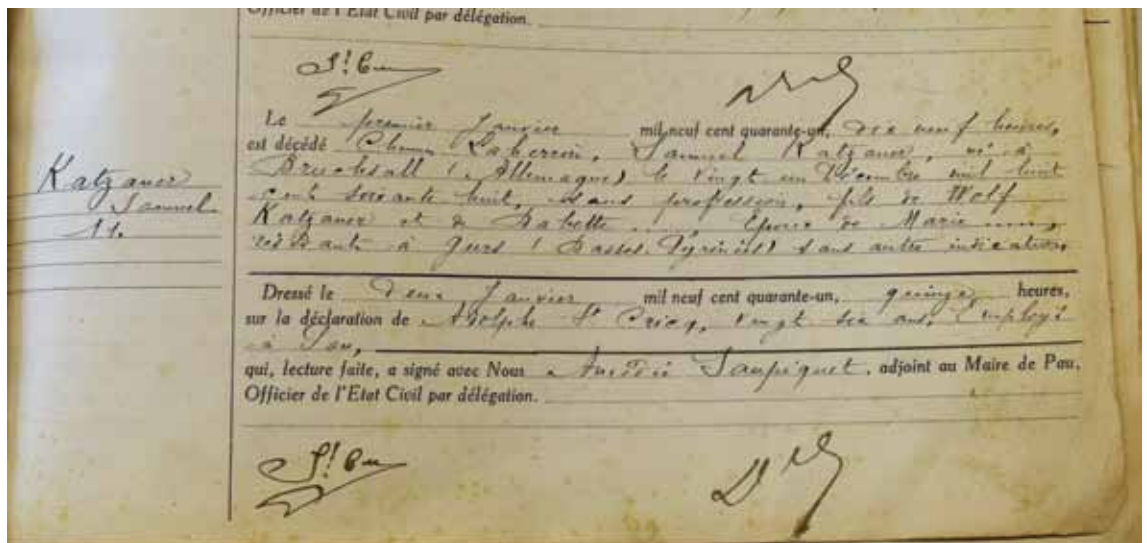 Officier de l'Etat Civil par délégation.
St Cric
Le premier Janvier mil neuf cent quarante-un, dix neuf heures,
est décédé Chemin Laherrère, Samuel Katzauer, né à
Bruchsall (Allemagne) le vingt un Décembre mil huit
cent soixante huit, sans profession, fils de Wolf
Katzauer et de Babette ....., Epoux de Marie .....,
résidant à Gurs (Basses-Pyrénées) sans autre indication.
Katzauer
Samuel
11.
Dressé le deux Janvier mil neuf cent quarante-un, quinze heures,
sur la déclaration de Adolphe St Cricq, vingt six ans, Employé
à Pau,
qui, lecture faite, a signé avec Nous Saupiquet, adjoint au Maire de Pau,
Officier de l'Etat Civil par délégation.
St Cric